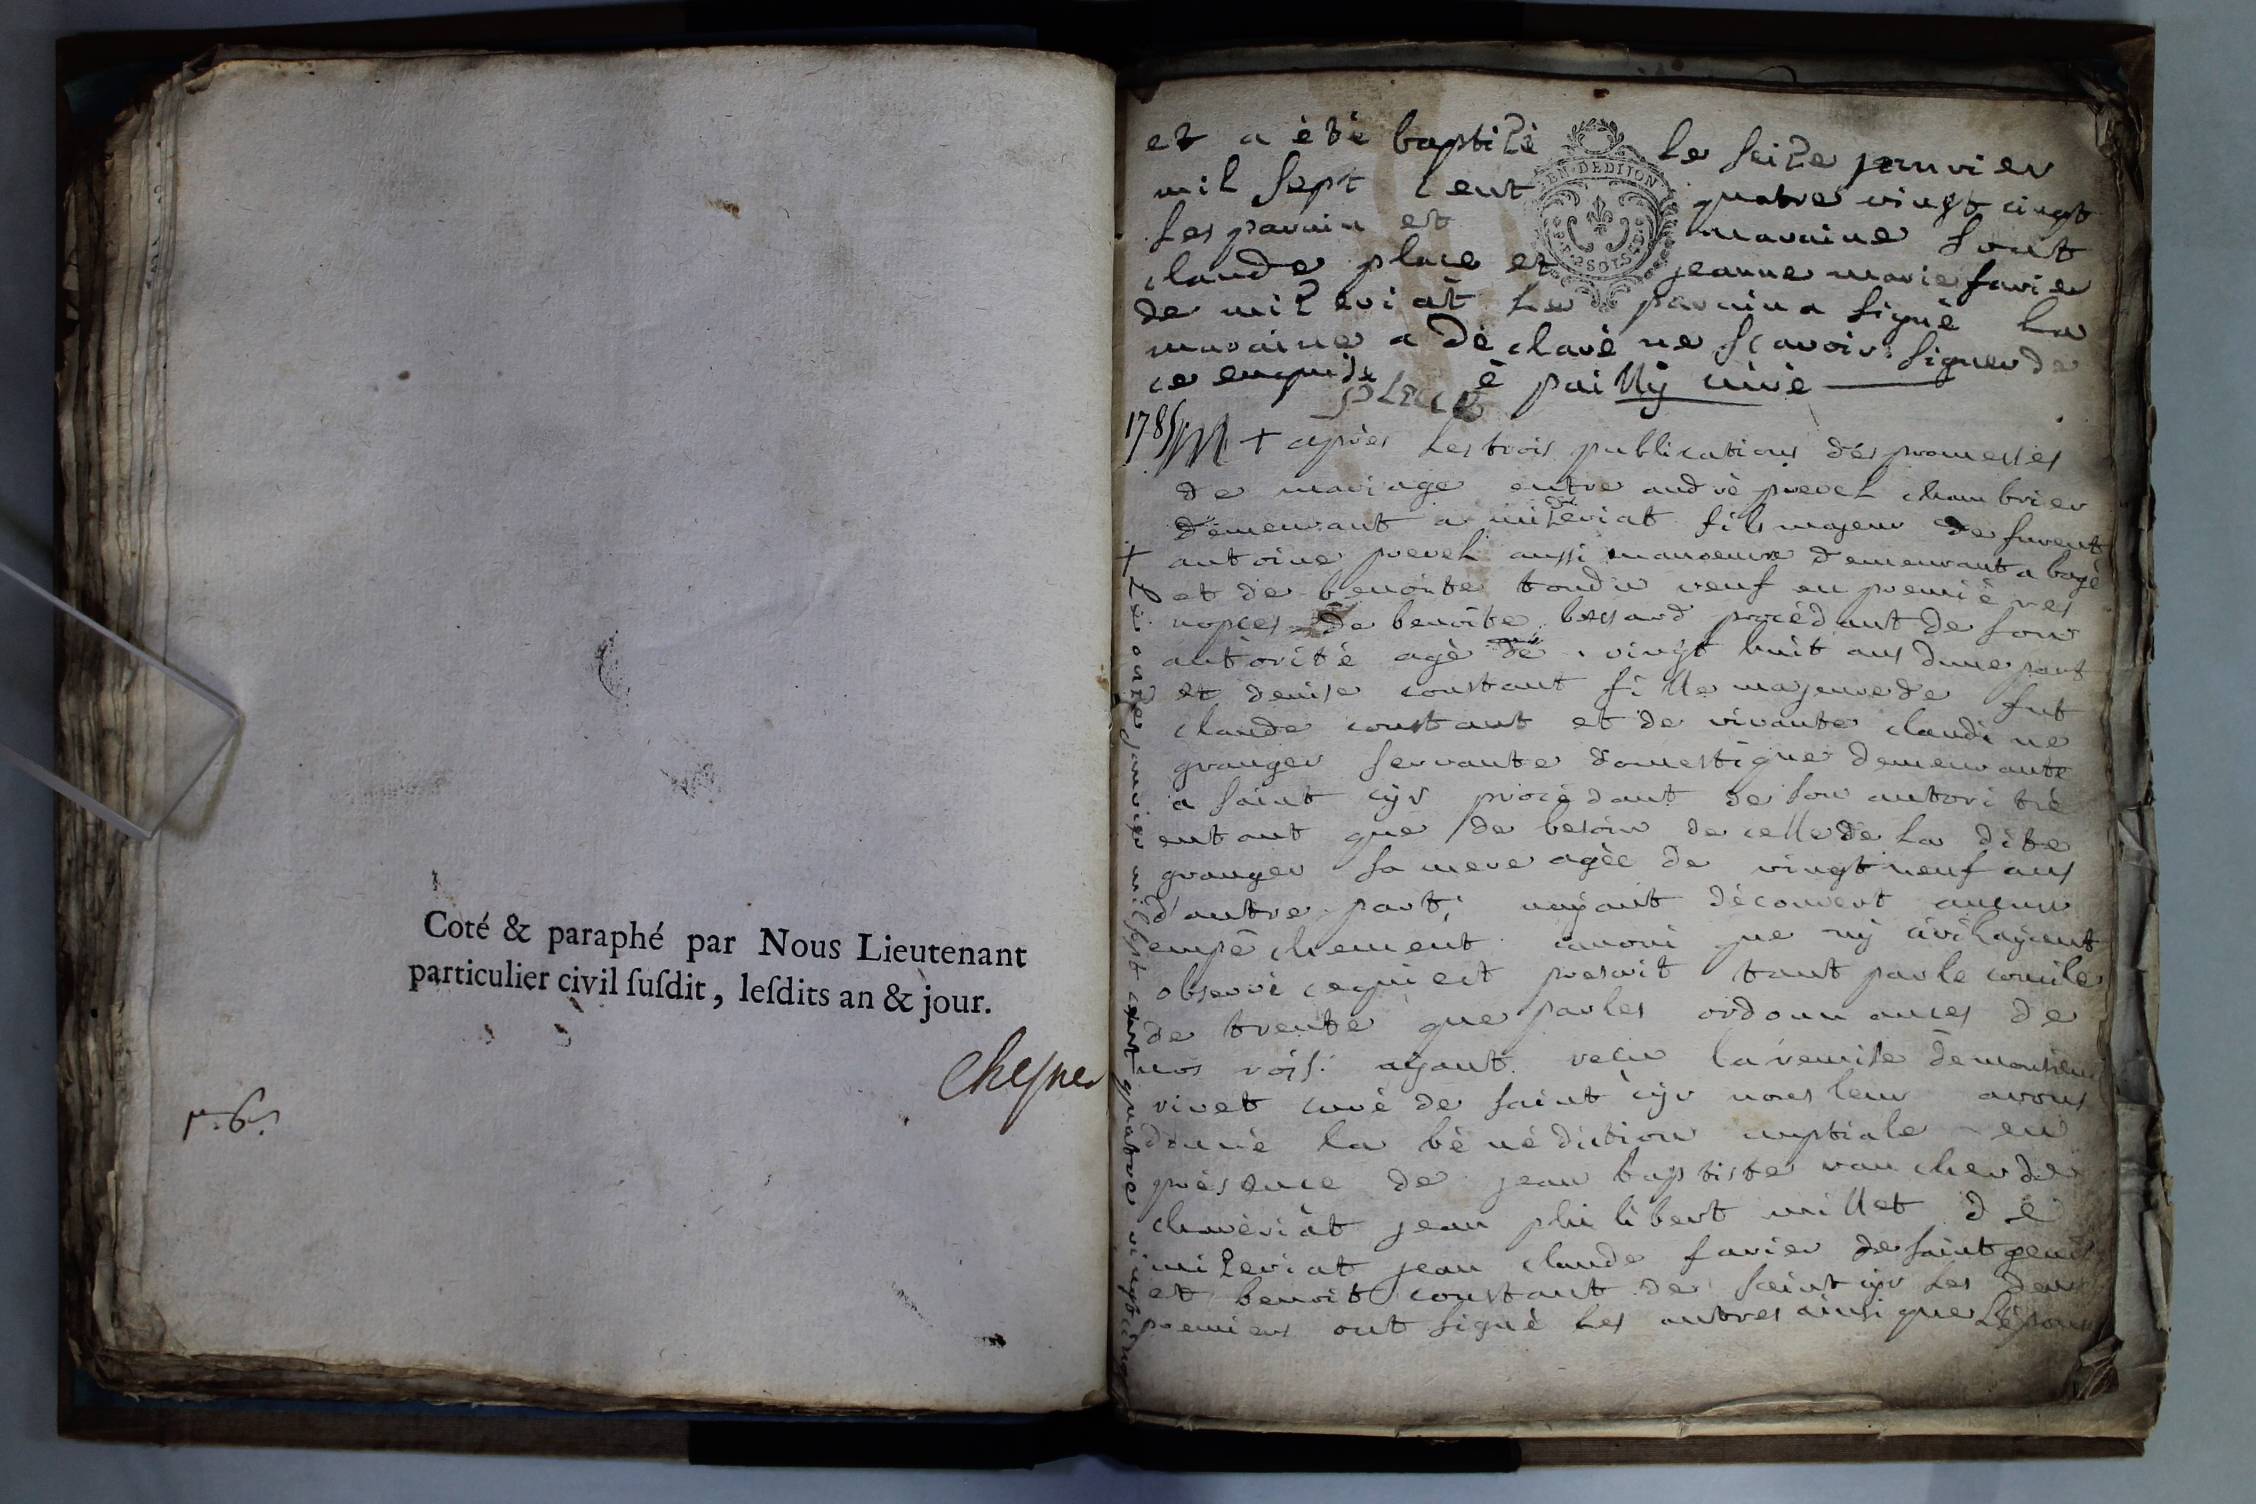 Coté & paraphé par Nous Lieutenant
particulier civil ſuſdit, leſdits an & jour.
Cheynes
et a été baptizé le seize janvier
mil sept cent quatre vingt cinqt
les parain et maraine sont
claude place et jeanne marie favier
de mizeriat le parain a signé la
maraine a déclaré ne scavoir signer de
ce enquise place pailly curé
EN. DEDIJON
2 SOLS
1785 M + après les trois publications dés promesses
de mariage entre andré prevel chambrier
démeurant a mizeriat fils majeur de furent
antoine prevel aussi manoeuvre demeurant a bagé
et de benoite tondu veuf en premiéres
nopces de benoite bessard procédant de son
autorité agé de vingt huit ans dune part
et denise constant fille majeure de fut
claude constant et de vivante claudine
granger servante domestique demeurante
a saint cÿr procédant de son autorité
entant que de besoin de celle de la dite
granger sa mere agée de vingt neuf ans
d'autre part; naÿant découvert aucun
empêchement canoni que nÿ civil aÿant
observé cequi est prescrit tant par le concile
de trente que par les ordonnances de
nos roÿs: aÿant recu la remise de monsieur
vivet curé de saint cÿr nous leur avons
donné la bénédiction nuptiale en
présence de jean baptiste vaucher de
chavériat jean philibert millet dé
mizeriat jean claude favier de saint genis
et benoit constant de saint cÿr les deux
premiers ont signé les autres ainsi que lépoux
+ Lé onze janvier mil sept cent quatre vingt cinq